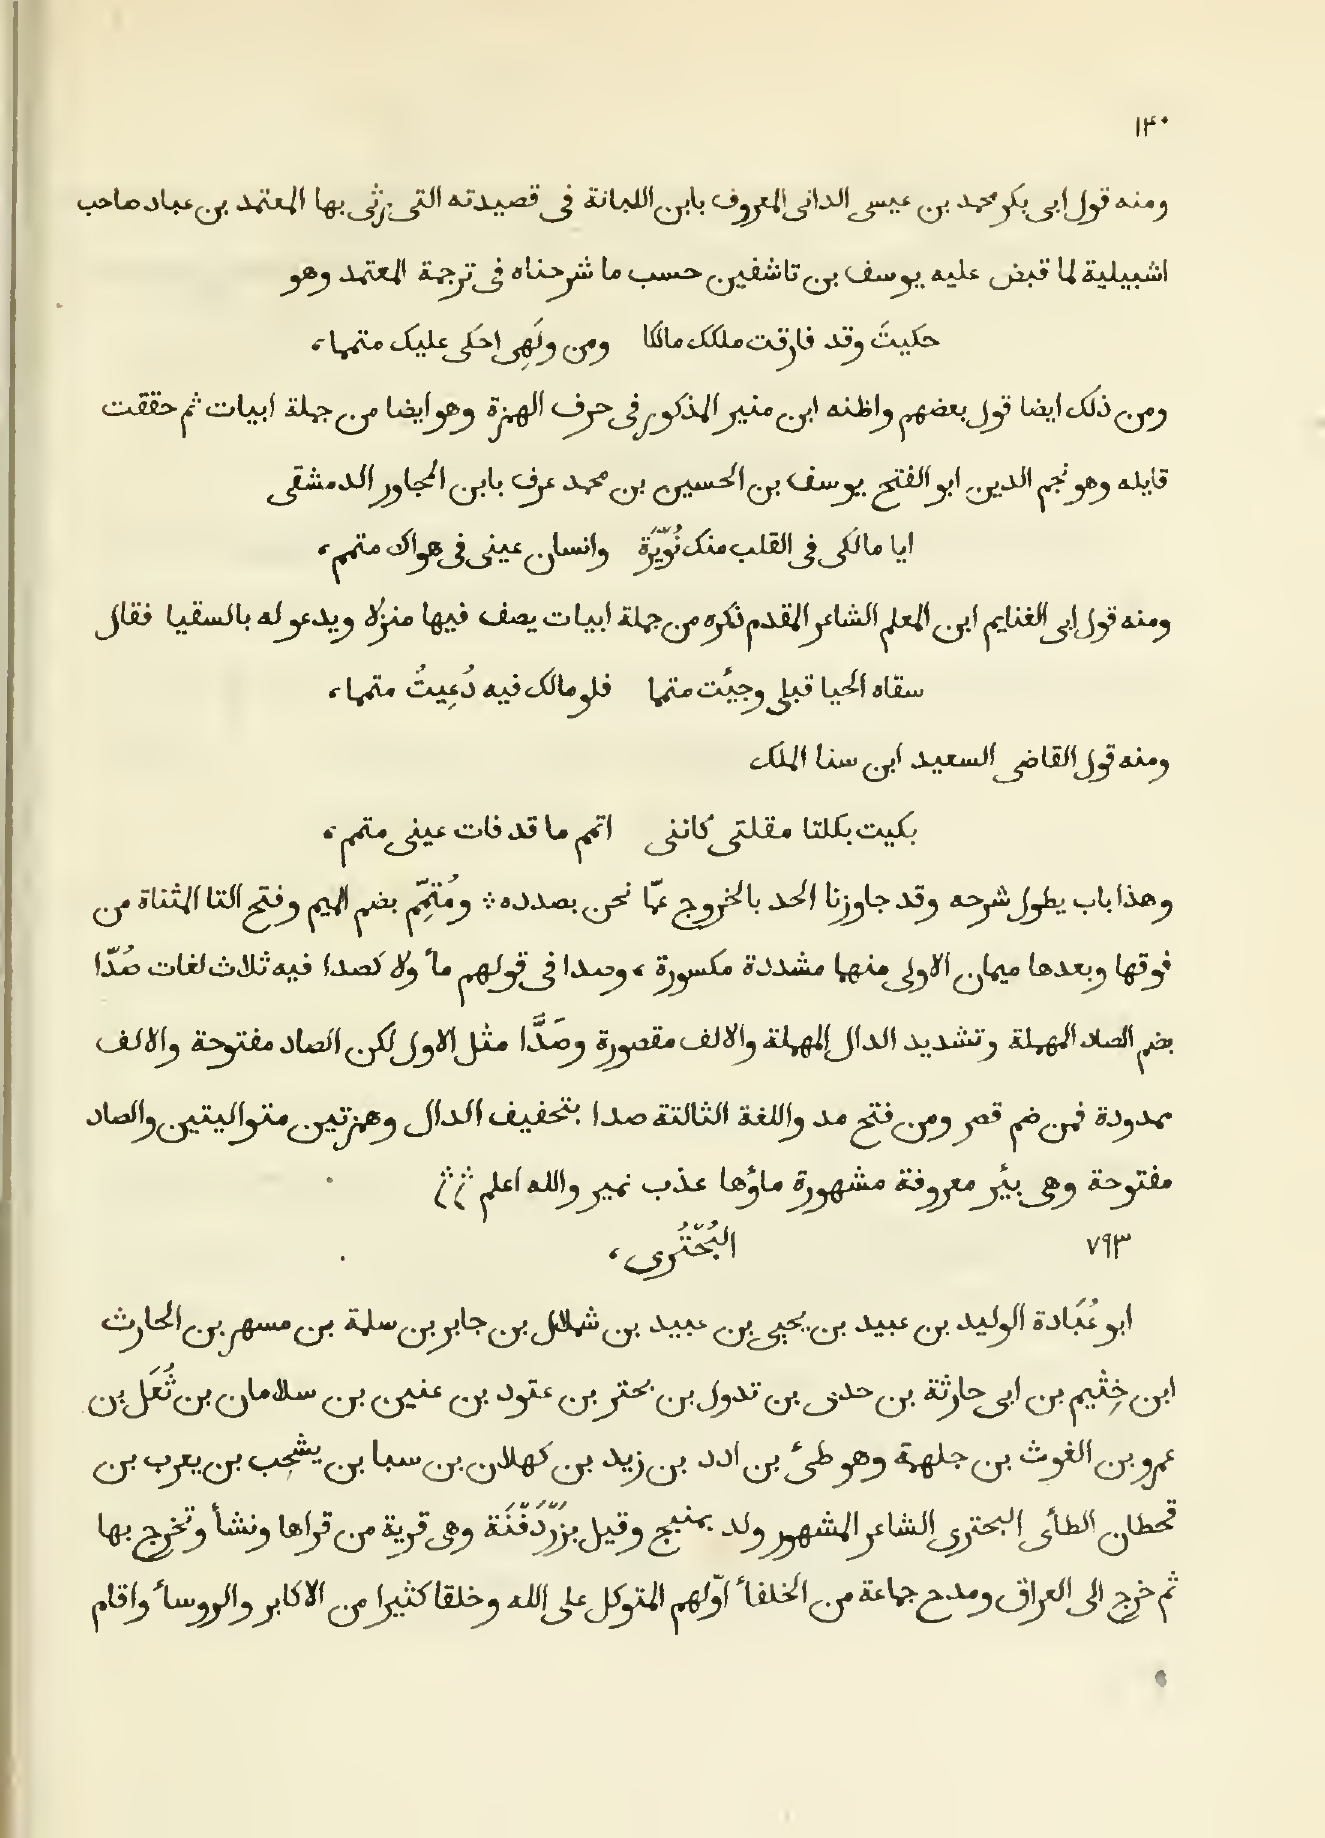 ١٤٠
ومنه قول ابى بكر محمد بن عيسى الدانى المعروف بابن اللبانة فى قصيدته التى رثى بها المعتمد بن عباد صاحب
اشبيلية لما قبض عليه يوسف بن تاشفين حسب ما شرحناه فى ترجمة المعتمد وهو
حكيتَ وقد فارقت ملكك مالكا ومن ولَهِى احكى عليك متمما،
ومن ذلك ايضا قول بعضهم واظنه ابن منير المذكور فى حرف الهمزة وهو ايضا من جملة ابيات ثم حققت
قايله وهو نجم الدين ابو الفتح يوسف بن الحسين بن محمد عرف بابن المجاور الدمشقى
ايا مالكى فى القلب منك نُوَيْرَة وانسان عينى فى هواك متمم،
ومنه قول ابى الغنايم ابن المعلم الشاعر المقدم ذكره من جملة ابيات يصف فيها منزلا ويدعو له بالسقيا فقال
سقاه الحيا قبلى وجئت متمما فلو مالك فيه دُعِيتُ متمما،
ومنه قول القاضى السعيد ابن سنا الملك
بكيت بكلتا مقلتى كاننى اتمم ما قد فات عينى متمم،
وهذا باب يطول شرحه وقد جاوزنا الحد بالخروج عمّا نحن بصدده ⁘ ومُتَمِّم بضم الميم وفتح التا المثناة من
فوقها وبعدها ميمان الاولى منهما مشددة مكسورة، وصدا فى قولهم مأ ولا كصدا فيه ثلاث لغات صُدّا
بضم الصاد المهملة وتشديد الدال المهملة والالف مقصورة وصَدَّا مثل الاول لكن الصاد مفتوحة والالف
ممدودة فمن ضم قصر ومن فتح مد واللغة الثالثة صدا بتخفيف الدال وهمزتين متواليتين والصاد
مفتوحة وهى بئر معروفة مشهورة ماؤها عذب نمير والله اعلم
٧٩٣ البُحْتُرى،
ابو عُبَادة الوليد بن عبيد بن يحيى بن عبيد بن شملال بن جابر بن سلمة بن مسهر بن الحارث
ابن خِثيم بن ابى حارثة بن جدى بن تدول بن بحتر بن عتود بن عنين بن سلامان بن ثُعَل بن
عمرو بن الغوث بن جلهمة وهو طئ بن ادد بن زيد بن كهلان بن سبا بن يشجِب بن يعرب بن
قحطان الطأى البحترى الشاعر المشهور ولد بمنبج وقيل بزَرْدَفْنَة وهى قرية من قراها ونشأ وتخرج بها
ثم خرج الى العراق ومدح جماعة من الخلفأ اوّلهم المتوكل على الله وخلقا كثيرا من الاكابر والروسأ واقام